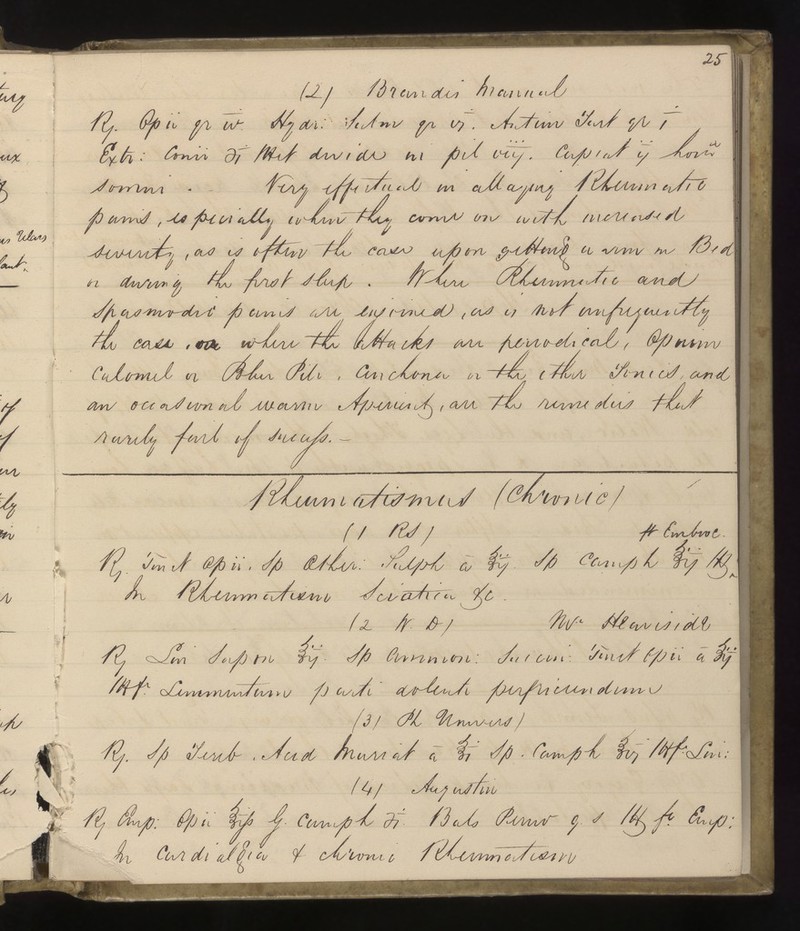 25
(2) Brandis Manual
Rx. Opii gr iv Hydr: Subm gr vj. Antim Tart gr i
Extr: Conii ʒi Mft divide in pil viij. Capiat ij hora
somni. Very effectual in allaying Rheumatic
pains, especially when they come on with increased
severity, as is often the case upon getting warm in Bed
or during the first sleep. Where Rheumatic and
spasmodic pains are enjoined, as is not unfrequently
the case, or where the attacks are periodical, Opium
Calomel or Blue Pill, Cinchona or the other Tonics, and
an occasional warm Aperient, are the remedies that
rarely fail of success. –
Rheumatismus (Chronic)
(1 RS) # Embroc.
Rx. Tinct Opii. Sp Æther: Sulph ā ʒij Sp Camph ʒij M
In Rheumatism Sciatica &c.
(2 W. D) Mr Heaviside
Rx Lin Sapon ʒij Sp Ammon: Succin: Tinct Opii ā ʒij
Mft Linimentum parti dolenti perfricandum
(3) Ph Univers)
Rx. Sp Tereb. Acid Muriat ā ʒi Sp. Camph ʒvj Mft Lin:
(4) Augustin
Rx Emp: Opii ʒiſs G. Camph ʒi Bals Peruv q. s M ft Emp:
In Cardialgia & chronic Rheumatism